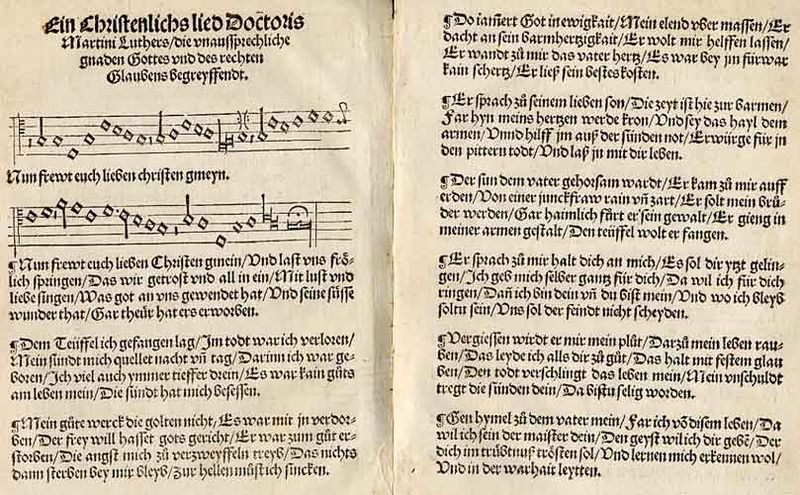 Ein Christenlichs lied Doctoris
Martini Luthers/die vnaussprechliche
gnaden Gottes vnd des rechten
Glaubens begreyffendt.
Nun frewt euch lieben christen gmeyn.
¶Nun frewt euch lieben Christen gmein/Vnd last vns frö-
lich springen/Das wir getrost vnd all in ein/Mit lust vnd
liebe singen/Was got an vns gewendet hat/Vnd seine süsse
wunder that/Gar theür hat ers erworben.
¶Dem Teüffel ich gefangen lag/Im todt war ich verloren/
Mein sündt mich quellet nacht vñ tag/Darinn ich war ge-
boren/Ich viel auch ymmer tieffer drein/Es war kain gůts
am leben mein/Die sündt hat mich besessen.
¶Mein gůte werck die golten nicht/Es war mit jn verdor-
ben/Der frey will hasset gots gericht/Er war zum gůt er-
storben/Die angst mich zů verzweyffeln treyb/Das nichts
dann sterben bey mir bleyb/Zur hellen můst ich sincken.
¶Do iam̃ert Got in ewigkait/Mein elend vber massen/Er
dacht an sein barmhertzigkait/Er wolt mir helffen lassen/
Er wandt zů mir das vater hertz/Es war bey jm fürwar
kain schertz/Er ließ sein bestes kosten.
¶Er sprach zů seinem lieben son/Die zeyt ist hie zur barmen/
Far hyn meins hertzen werde kron/Vnd sey das hayl dem
armen/Vnnd hilff jm auß der sünden not/Erwürge für jn
den pittern todt/Vnd laß jn mit dir leben.
¶Der sun dem vater gehorsam wardt/Er kam zů mir auff
erden/Von einer junckfraw rain vñ zart/Er solt mein brů-
der werden/Gar haimlich fůrt er sein gewalt/Er gieng in
meiner armen gestalt/Den teüffel wolt er fangen.
¶Er sprach zů mir halt dich an mich/Es sol dir ytzt gelin-
gen/Ich geb mich selber gantz für dich/Da wil ich für dich
ringen/Dañ ich bin dein vñ du bist mein/Vnd wo ich bleyb
soltu sein/Vns sol der feindt nicht scheyden.
¶Vergiessen wirdt er mir mein plůt/Darzů mein leben rau-
ben/Das leyde ich alls dir zů gůt/Das halt mit festem glau
ben/Den todt verschlingt das leben mein/Mein vnschuldt
tregt die sünden dein/Da bistu selig worden.
¶Gen hymel zů dem vater mein/Far ich võ disem leben/Da
wil ich sein der maister dein/Den geyst wil ich dir gebẽ/Der
dich im trübtnuß trösten sol/Vnd lernen mich erkennen wol/
Vnd in der warhait leytten.